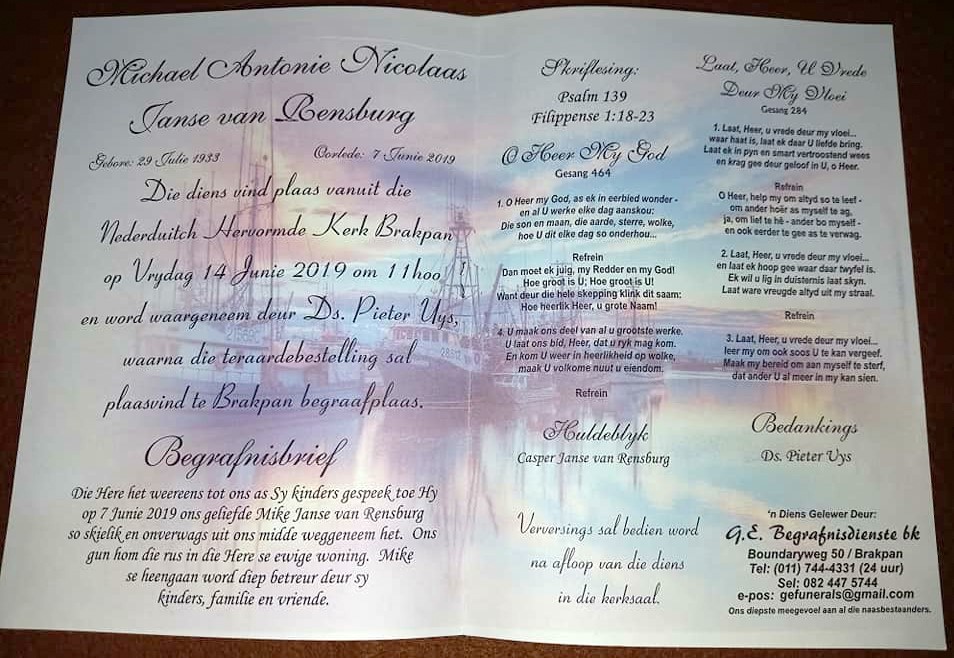 Michael Antonie Nicolaas
Janse van Rensburg
Gebore: 29 Julie 1933
Oorlede: 7 Junie 2019
Die diens vind plaas vanuit die
Nederduitch Hervormde Kerk Brakpan
op Vrydag 14 Junie 2019 om 11h00
en word waargeneem deur Ds. Pieter Uys,
waarna die teraardebestelling sal
plaasvind te Brakpan begraafplaas.
Begrafnisbrief
Die Here het weereens tot ons as Sy kinders gespeek toe Hy
op 7 Junie 2019 ons geliefde Mike Janse van Rensburg
so skielik en onverwags uit ons midde weggeneem het. Ons
gun hom die rus in die Here se ewige woning. Mike
se heengaan word diep betreur deur sy
kinders, familie en vriende.
Skriflesing:
Psalm 139
Filippense 1:18-23
O Heer My God
Gesang 464
1. O Heer my God, as ek in eerbied wonder -
en al U werke elke dag aanskou:
Die son en maan, die aarde, sterre, wolke,
hoe U dit elke dag so onderhou...
Refrein
Dan moet ek juig, my Redder en my God!
Hoe groot is U; Hoe groot is U!
Want deur die hele skepping klink dit saam:
Hoe heerlik Heer, u grote Naam!
4. U maak ons deel van al u grootste werke.
U laat ons bid, Heer, dat u ryk mag kom.
En kom U weer in heerlikheid op wolke,
maak U volkome nuut u eiendom.
Refrein
Huldeblyk
Casper Janse van Rensburg
Verversings sal bedien word
na afloop van die diens
in die kerksaal.
Laat, Heer, U Vrede
Deur My Vloei
Gesang 284
1. Laat, Heer, u vrede deur my vloei...
waar haat is, laat ek daar U liefde bring.
Laat ek in pyn en smart vertroostend wees
en krag gee deur geloof in U, o Heer.
Refrein
O Heer, help my om altyd so te leef -
om ander hoër as myself te ag,
ja, om lief te hê - ander bo myself -
en ook eerder te gee as te verwag.
2. Laat, Heer, u vrede deur my vloei...
en laat ek hoop gee waar daar twyfel is.
Ek wil u lig in duisternis laat skyn.
Laat ware vreugde altyd uit my straal.
Refrein
3. Laat, Heer, u vrede deur my vloei...
leer my om ook soos U te kan vergeef.
Maak my bereid om aan myself te sterf,
dat ander U al meer in my kan sien.
Bedankings
Ds. Pieter Uys
'n Diens Gelewer Deur:
G.E. Begrafnisdienste bk
Boundaryweg 50 / Brakpan
Tel: (011) 744-4331 (24 uur)
Sel: 082 447 5744
e-pos: gefunerals@gmail.com
Ons diepste meegevoel aan al die naasbestaanders.